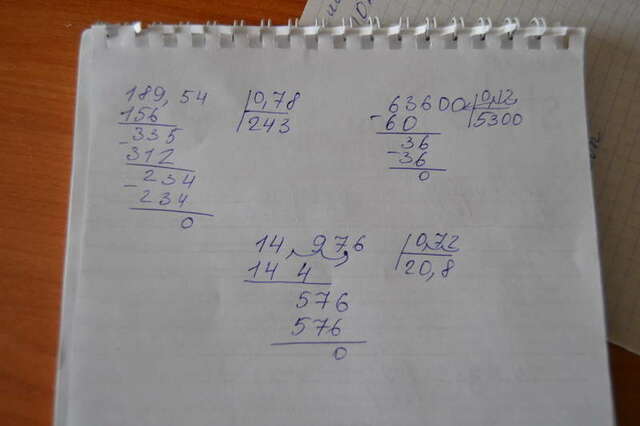 189,54 0,78
156 243
-335
312
-234
234
0
63600 0,12
-60 5300
-36
-36
0
14,976 0,72
14 4 20,8
576
576
0